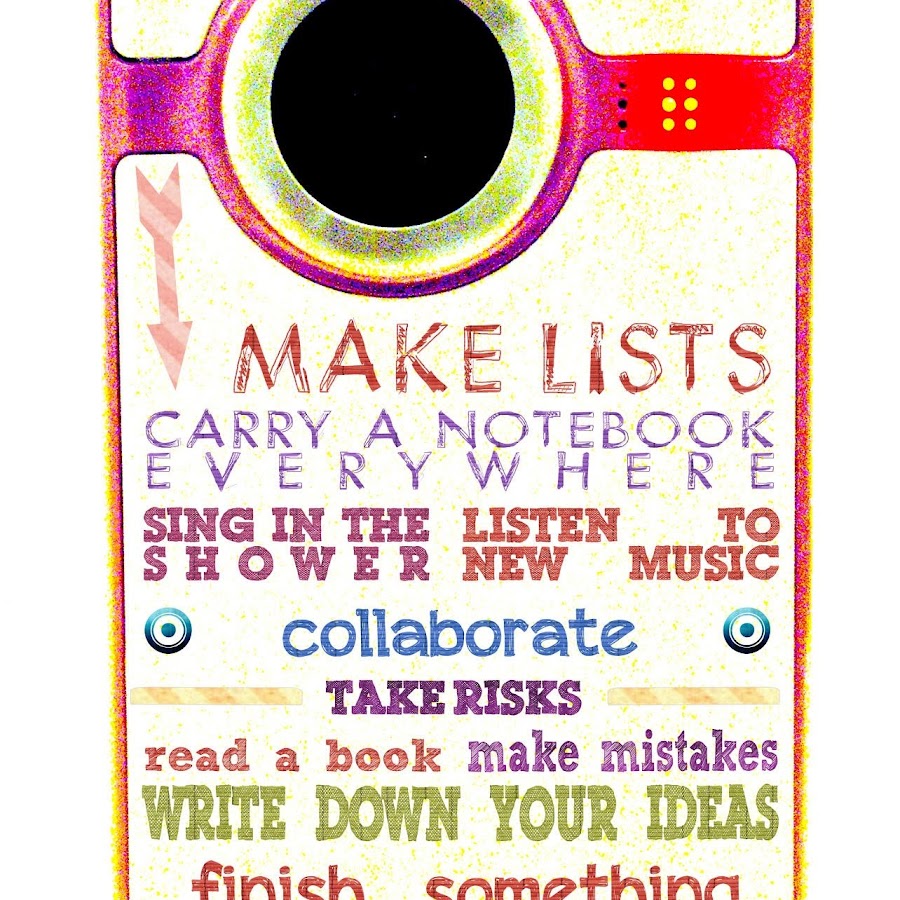 MAKE LISTS
CARRY A NOTEBOOK
EVERYWHERE
SING IN THE
SHOWER
LISTEN TO
NEW MUSIC
collaborate
TAKE RISKS
read a book make mistakes
WRITE DOWN YOUR IDEAS
finish something